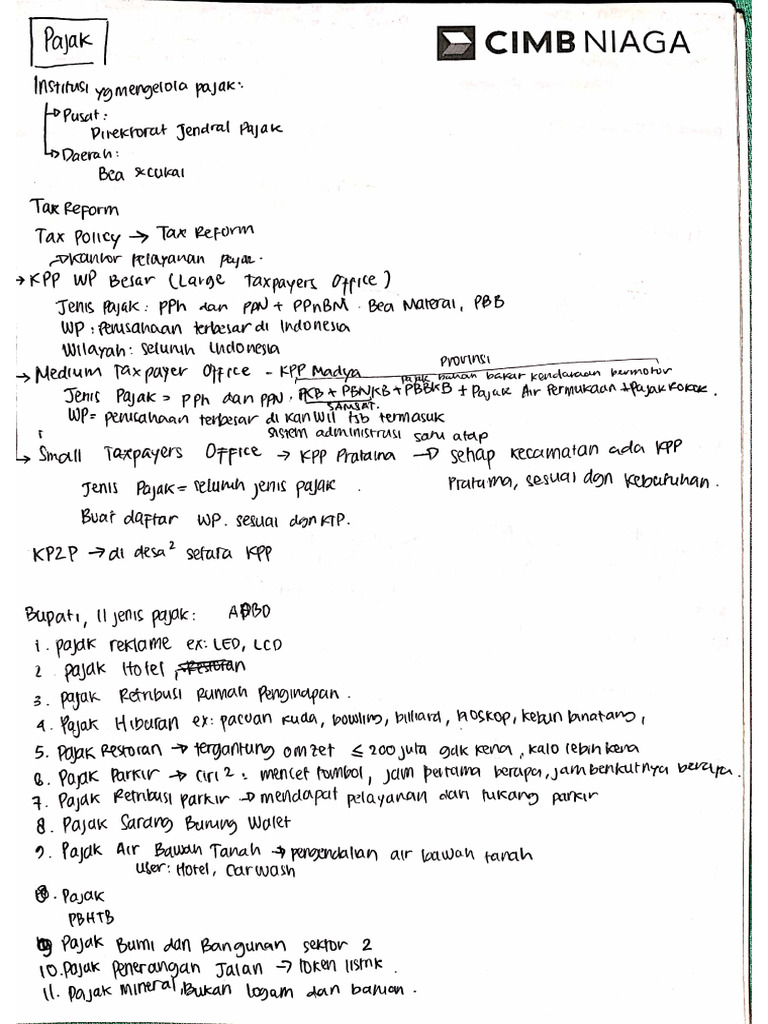 Pajak
CIMB NIAGA
Institusi yg mengelola pajak:
Pusat:
Direktorat Jendral Pajak
Daerah:
Bea & cukai
Tax Reform
Tax Policy → Tax Reform
→ Kantor Pelayanan Pajak.
→ KPP WP Besar (Large Taxpayers Office)
Jenis Pajak: PPh dan PPN + PPnBM. Bea Materai, PBB
WP: Perusahaan terbesar di Indonesia
Wilayah: Seluruh Indonesia
Provinsi
→ Medium Taxpayer Office - KPP Madya
pajak bahan bakar kendaraan bermotor
Jenis Pajak = PPh dan PPN. PKB + PBNKB + PBBKB + Pajak Air Permukaan + Pajak Rokok.
SAMSAT.
WP = perusahaan terbesar di KanWil tsb termasuk
sistem administrasi satu atap
→ Small Taxpayers Office → KPP Pratama → setiap kecamatan ada KPP
Pratama, sesuai dgn kebutuhan.
Jenis Pajak = seluruh jenis pajak.
Buat daftar WP. sesuai dgn KTP.
KP2P → di desa² setara KPP
Bupati, 11 jenis pajak: APBD
1. pajak reklame ex: LED, LCD
2 pajak Hotel, Restoran
3. pajak Retribusi Rumah Penginapan.
4. Pajak Hiburan ex: pacuan kuda, bowling, billiard, bioskop, kebun binatang,
5. Pajak Restoran → tergantung omzet ≤ 200 juta gak kena, kalo lebih kena
6. Pajak Parkir → ciri²: mencet tombol, jam pertama berapa, jam berikutnya berapa.
7. Pajak Retribusi Parkir → mendapat pelayanan dari tukang parkir
8. Pajak Sarang Burung Walet
9. Pajak Air Bawah Tanah → pengendalian air bawah tanah
user: Hotel, Carwash
. Pajak
PBHTB
Pajak Bumi dan Bangunan sektor 2
10. Pajak Penerangan Jalan → token listrik.
11. Pajak mineral, Bukan logam dan batuan.